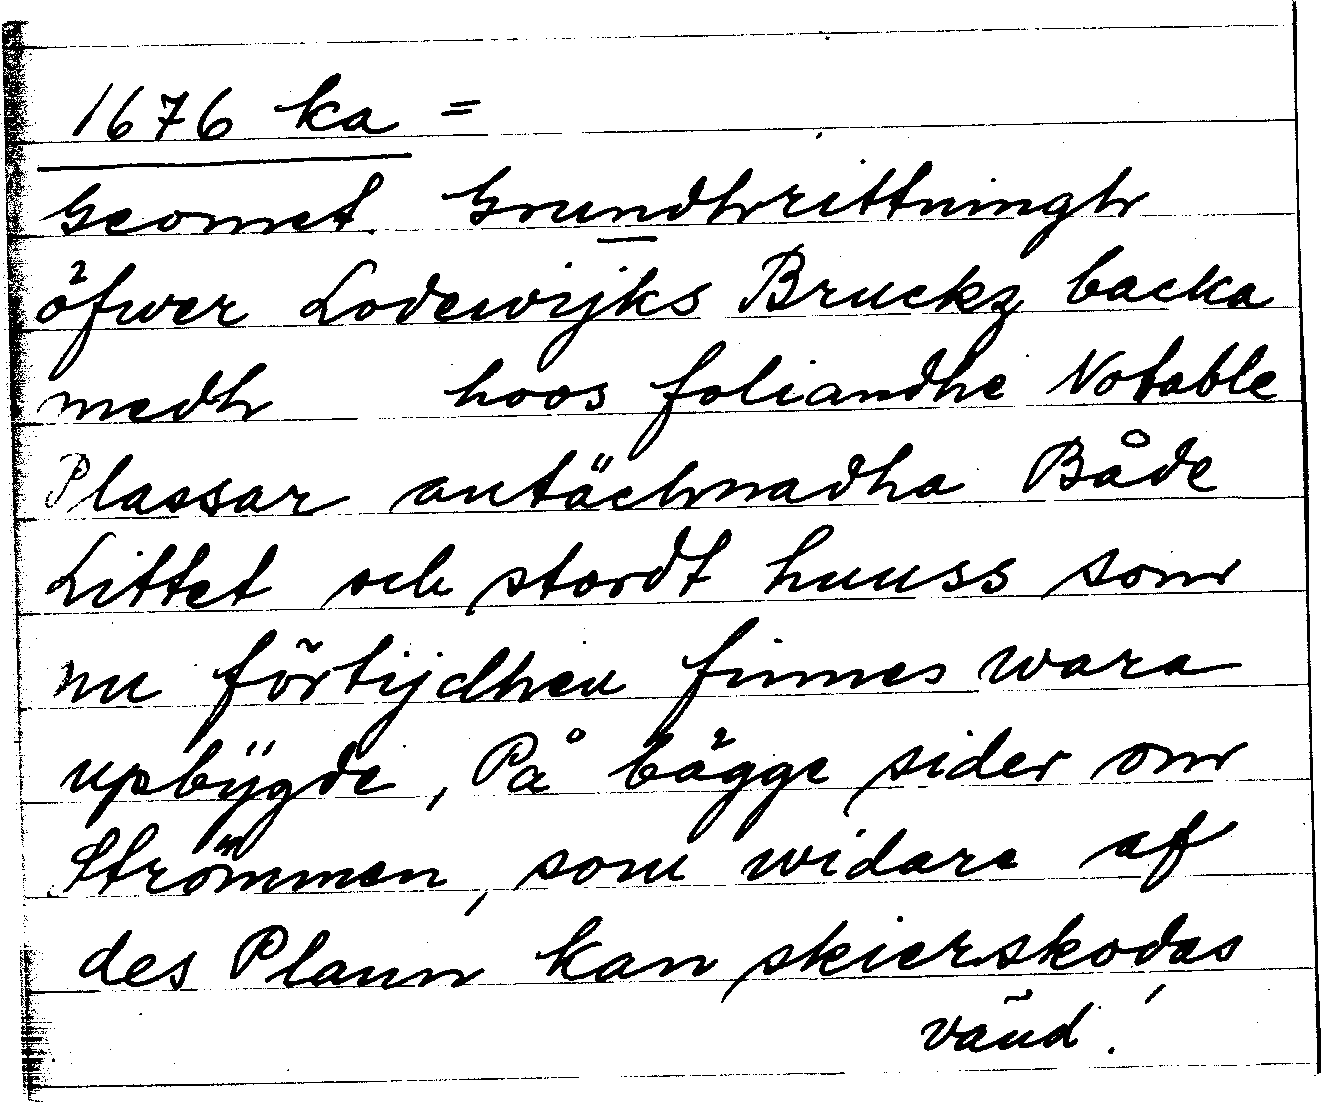 1676 ka =
Geomet. Grundhrittningh
öfwer Lodewijks Bruckz backa
medh hoos foliandhe Notable
Plassar antächnadha Både
Littet och stordt huuss som
nu förtijdhen finnes wara
upbÿgde, På bägge sider om
Strömmen, som widare af
des Plann kan skierskodas
vänd!